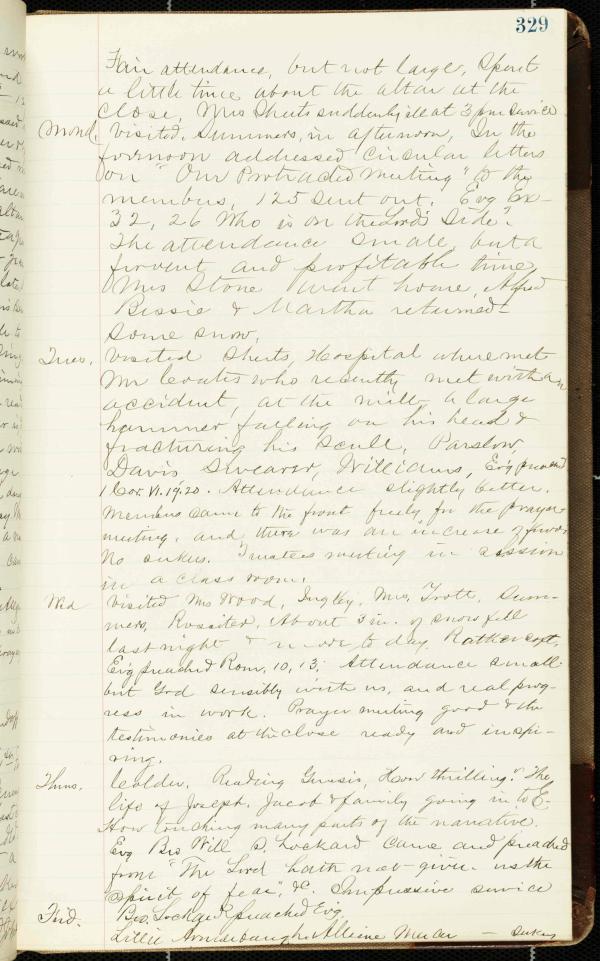 329
Fair attendance, but not large, Spent
a little time about the altar at the
close, Mrs Sheets suddenly ill at 3 pm service
Mond. Visited, Summers, in afternoon, In the
forenoon addressed circular letters
on "Our Protracted Meeting" to the
members, 125 sent out. Evg Ex-
32, 26 Who is on the Lord's side".
The attendance small, but a
fervent and profitable time
Mrs Stone went home, Alfred
Bessie & Martha returned-
some snow.
Tues. Visited Sheets, Hospital where met
Mr Coates who recently met with an
accident, at the mill, a large
hammer falling on his head &
fracturing his scull, Parslow,
Davis Swearer, Williams, Ev'g preached
1 Cor. VI. 19.20. Attendance slightly better.
Members came to the front freely, for the prayer
meeting, and there was an increase of
No seekers. Trustees meeting in session
in a class room.
Wed Visited Mrs Wood, Ingley, Mrs. Trott, Sum-
mers, Rossiter, About 3 in. of snow fell
last night & more to day, Rather soft.
Ev'g preached Rom. 10, 13; Attendance small
but God sensibly with us, and real prog-
ress in work. Prayer meeting good & the
testimonies at the close ready and inspi-
ring.
Thurs. Colder. Reading Genesis, How thrilling! The
life of Joseph, Jacob & family going in to E-
How touching many parts of the narrative.
Evg Bro Will D. Lockard came and preached
from "The Lord hath not given us the
spirit of fear", &c. Impressive service
Frid. Bro. Lockard preached Evg.
Lillie Alliene Mercer - seekers